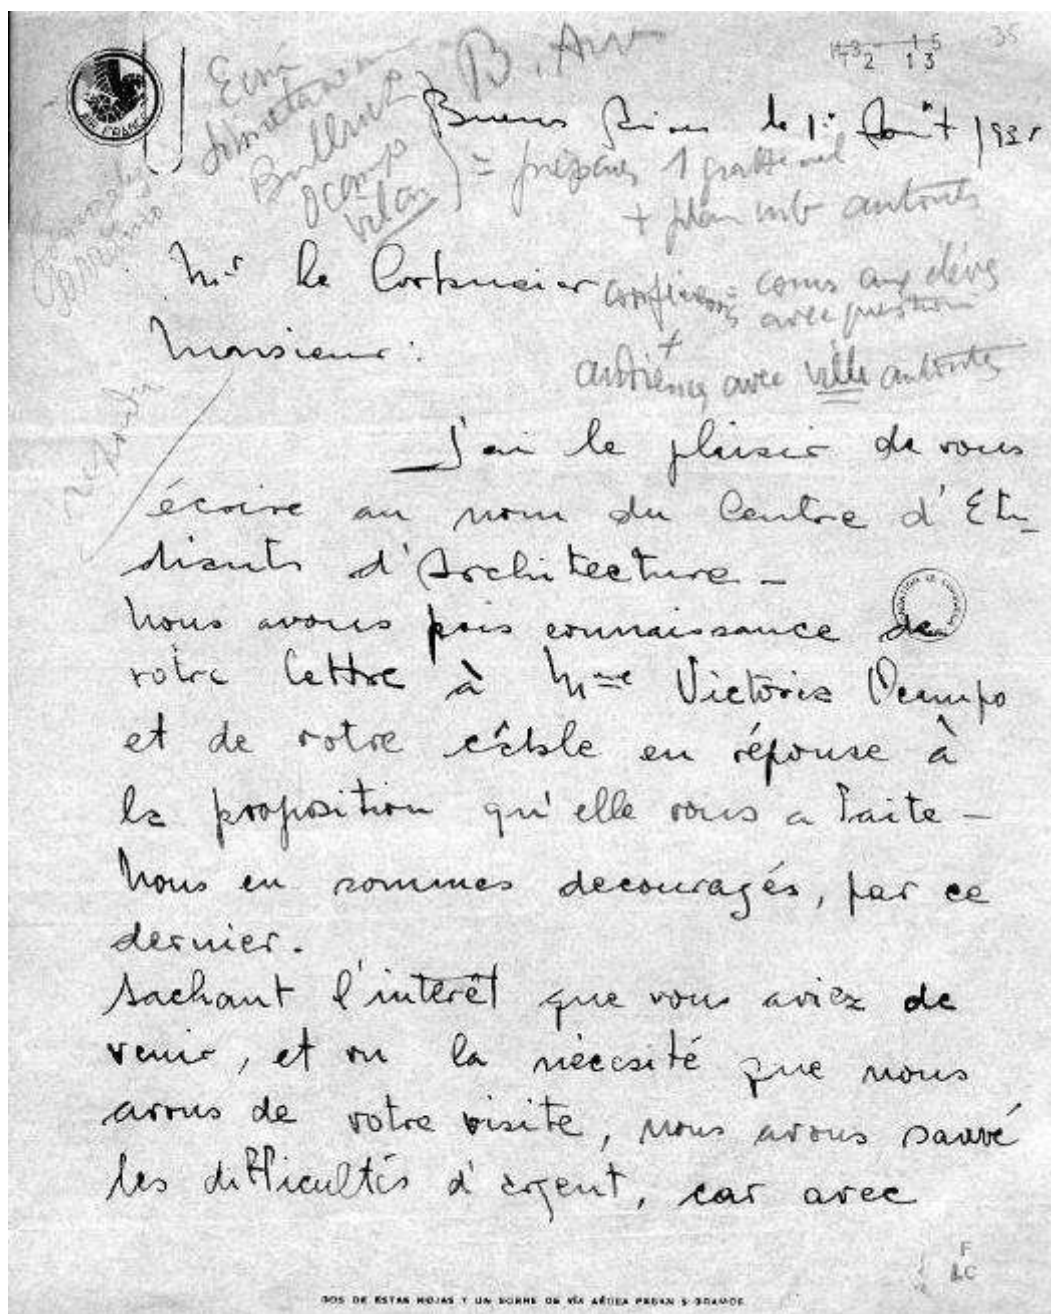 AIR FRANCE
35
B. Air
Buenos Aires le 1er Août 193
Ocampo
Vilar
= préparer 1
+ plan autorités
Mr Le Corbusier
conférences = cours aux élèves
avec question
+
Monsieur:
audience avec ville autorités
J'ai le plaisir de vous
écrire au nom du Centre d'Etu-
diants d'Architecture -
Nous avons pris connaissance de
votre lettre à Mme Victoria Ocampo
et de votre câble en réponse à
la proposition qu'elle vous a faite -
Nous en sommes decouragés, par ce
dernier.
Sachant l'intérêt que vous aviez de
venir, et vu la nécesité que nous
avons de votre visite, nous avons sauvé
les difficultés d'argent, car avec
F
LC
DOS DE ESTAS HOJAS Y UN SOBRE DE VÍA AÉREA PESAN 5 GRAMOS